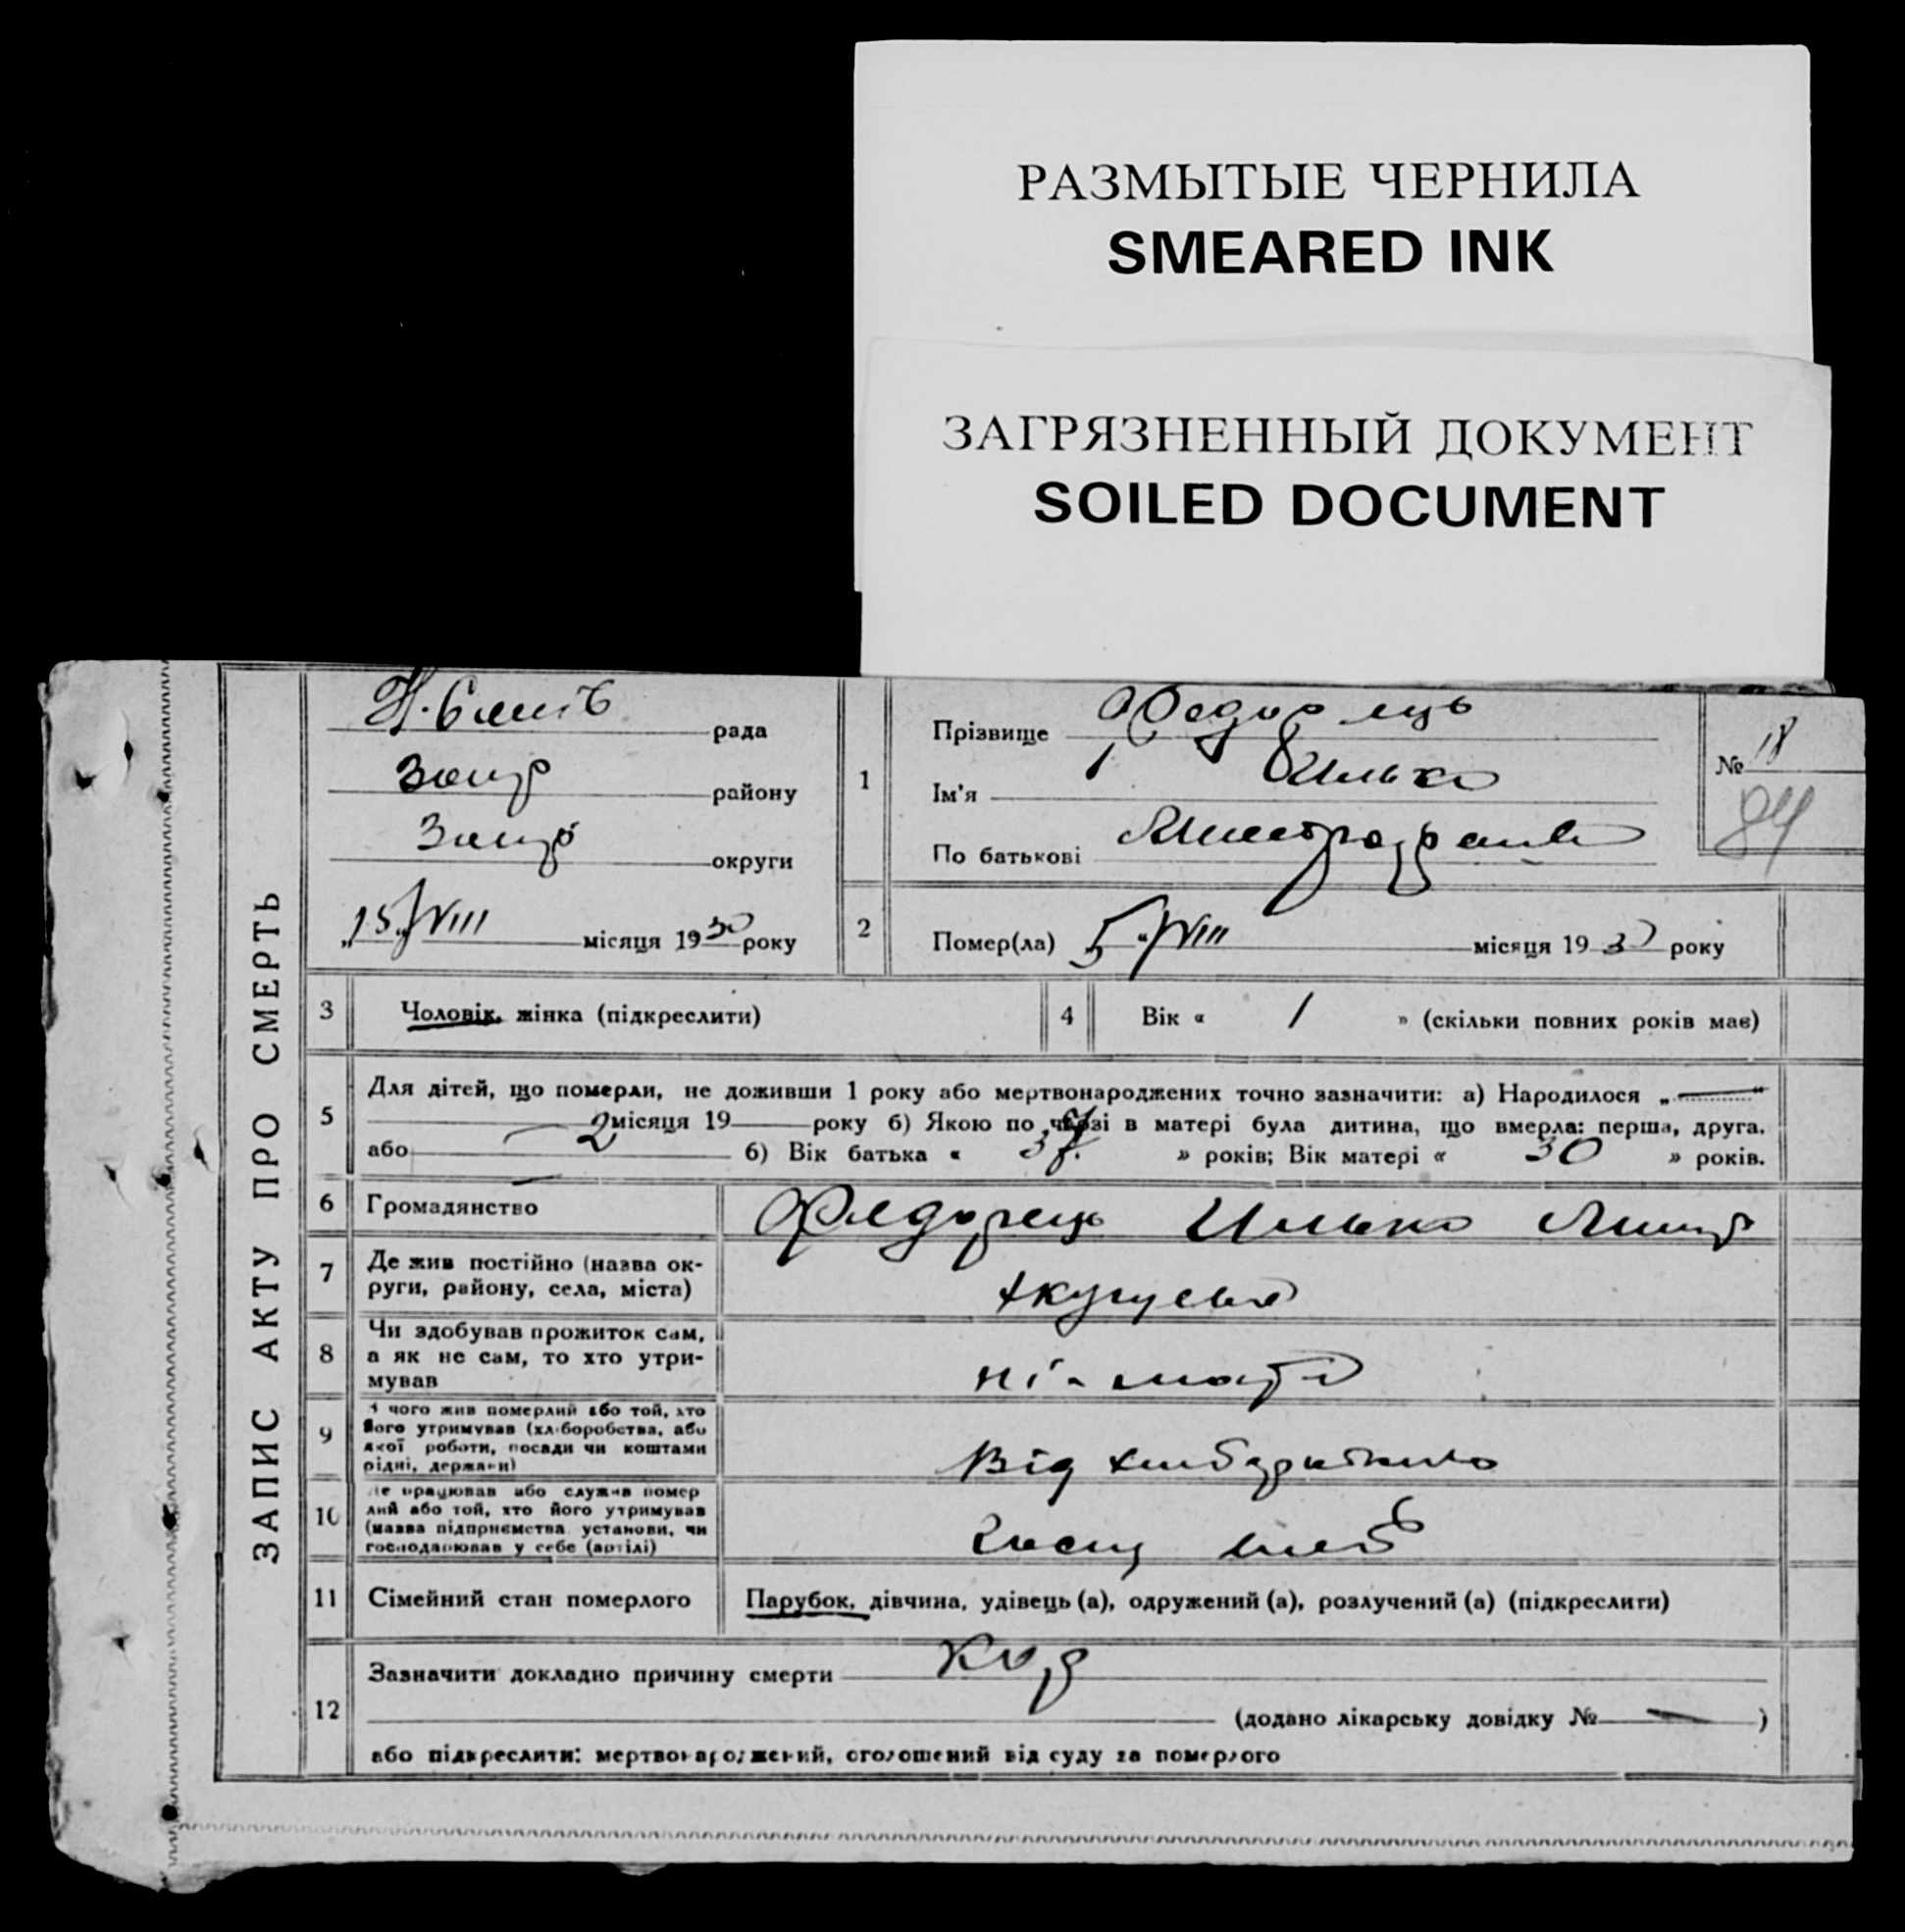 РАЗМЫТЫЕ ЧЕРНИЛА
SMEARED INK
ЗАГРЯЗНЕННЫЙ ДОКУМЕНТ
SOILED DOCUMENT
ЗАПИС АКТУ ПРО СМЕРТЬ
рада
району
округи
"15" VIII місяця 1930 року
1
Прізвище Федорець
Ім'я Илько
По батькові
№ 18
84
2
Помер(ла) 5 " VIII місяця 1930 року
3
Чоловік, жінка (підкреслити)
4
Вік « 1 » (скільки повних років має)
5
Для дітей, що померли, не доживши 1 року або мертвонароджених точно зазначити: а) Народилося „ — "
2 місяця 19— року б) Якою по черзі в матері була дитина, що вмерла: перша, друга,
або — 6) Вік батька « 37 » років; Вік матері « 30 » років.
6
Громадянство
Федорець Илько
7
Де жив постійно (назва ок-
руги, району, села, міста)
8
Чи здобував прожиток сам,
а як не сам, то хто утри-
мував
ні - мати
9
З чого жив померлий або той, хто
його утримував (хліборобства, або
якої роботи, посади чи коштами
рідні, держави)
Від
10
Де працював або служив помер
лий або той, хто його утримував
(назва підприємства установи, чи
господарював у себе (артілі)
11
Сімейний стан померлого
Парубок, дівчина, удівець (а), одружений (а), розлучений (а) (підкреслити)
12
Зазначити докладно причину смерти Кор
(додано лікарську довідку № — )
або підкреслити: мертвонароджений, оголошений від суду за померлого